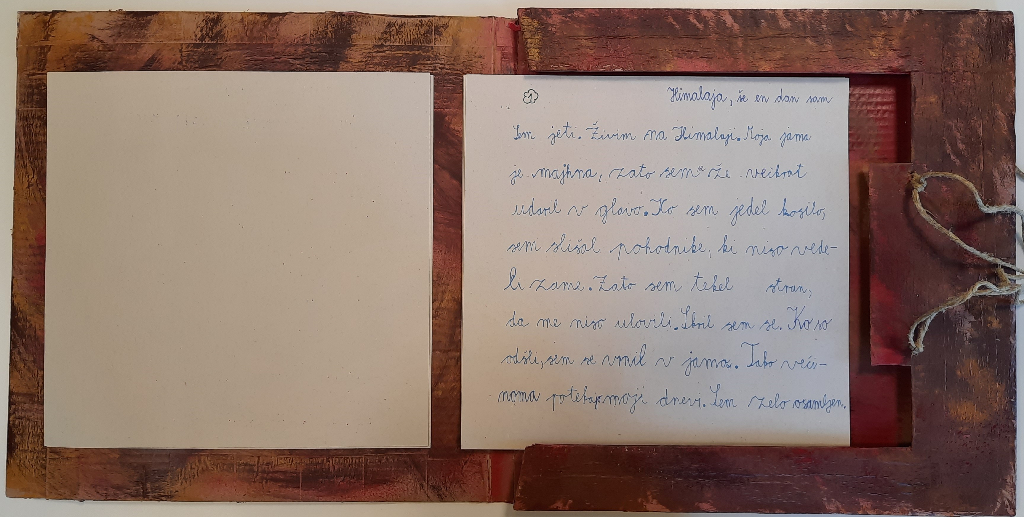 1
Himalaja, še en dan sam
Sem jeti. Živim na Himalaji. Moja jama
je majhna, zato sem se že večkrat
udaril v glavo. Ko sem jedel kosilo,
sem slišal pohodnike, ki niso vede-
li zame. Zato sem tekel stran,
da me niso ulovili. Skril sem se. Ko so
odšli, sem se vrnil v jamo. Tako veči-
noma potekajo moji dnevi. Sem zelo osamljen.